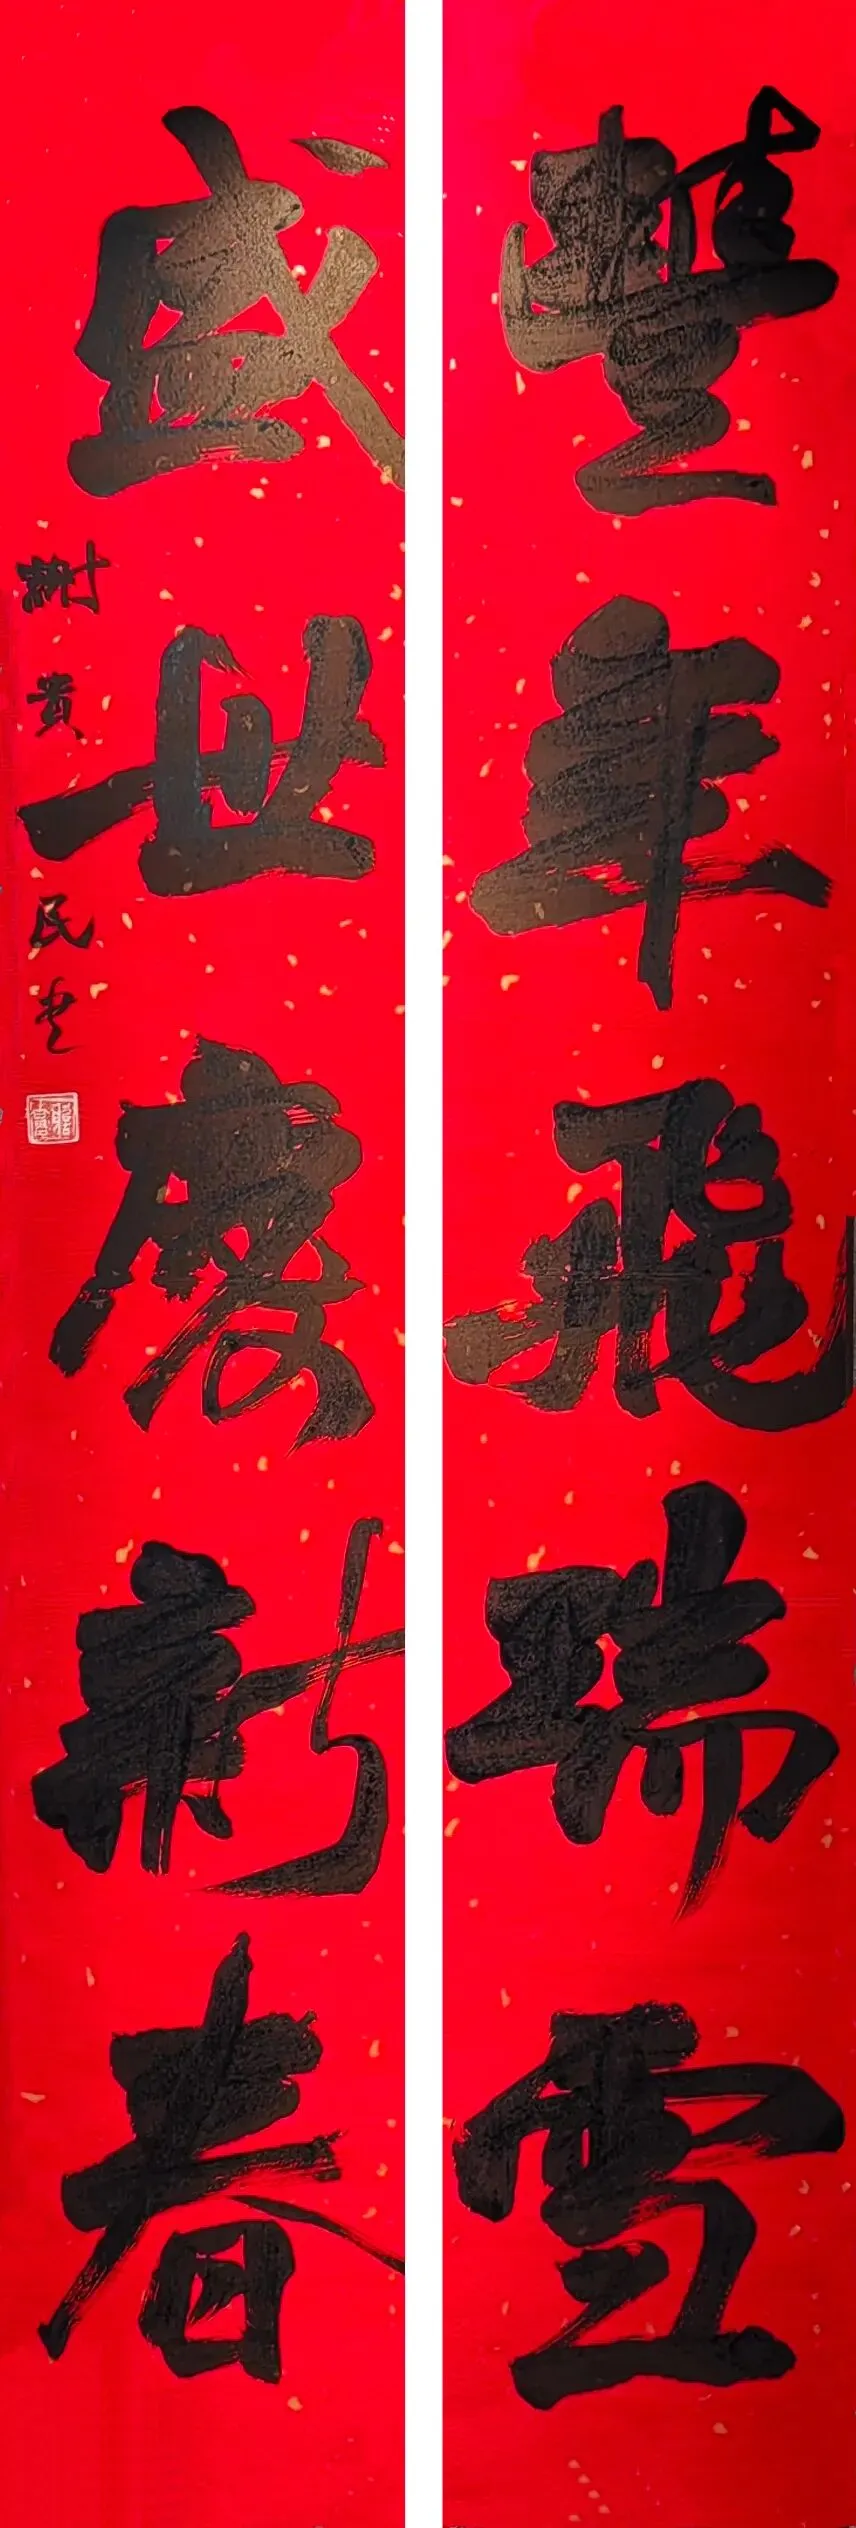 豐年飛瑞雪
盛世慶新春
謝貴民書